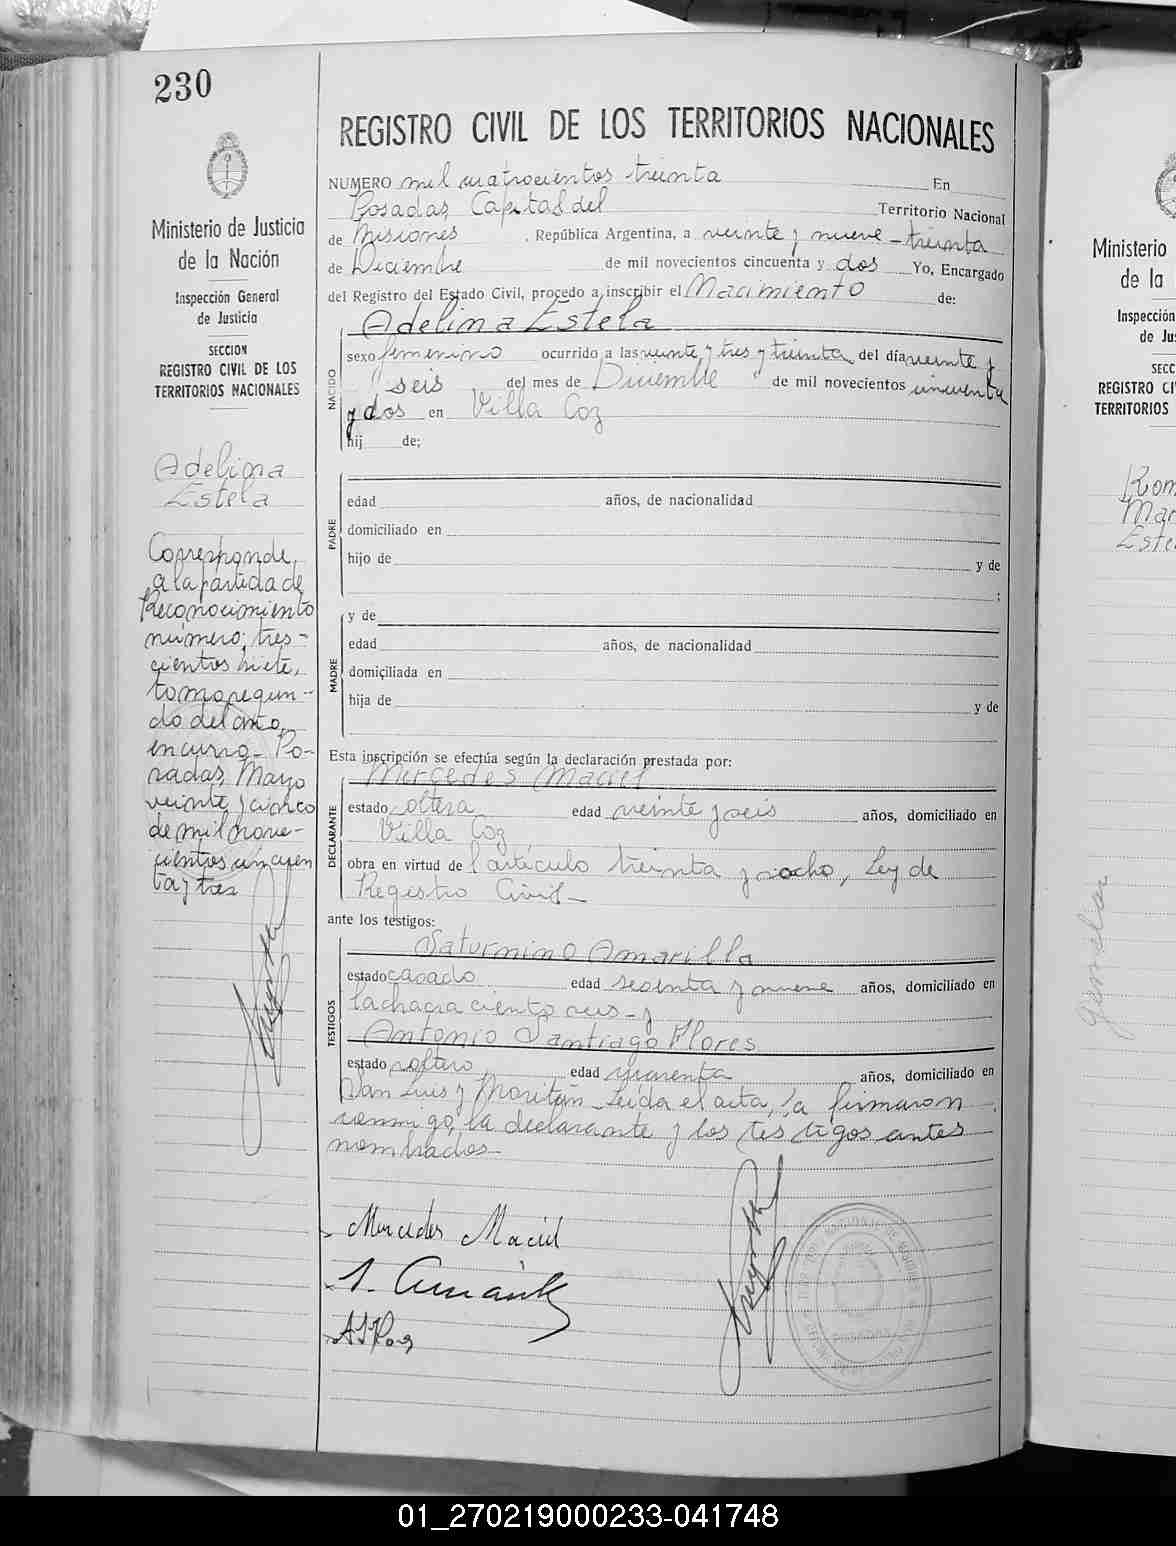 230
Ministerio de Justicia
de la Nación
Inspección General
de Justicia
SECCION
REGISTRO CIVIL DE LOS
TERRITORIOS NACIONALES
Adelina
Estela
Corresponde,
a la partida de
Reconocimiento
número; tres-
cientos siete,
tomo segun-
do del año,
en curso - Po-
sadas, Mayo
veinte y cinco
de mil nove-
cientos cincuen
ta y tres
REGISTRO CIVIL DE LOS TERRITORIOS NACIONALES
NUMERO mil cuatrocientos treinta En
Posadas, Capital del Territorio Nacional
de Misiones . República Argentina, a veinte y nueve - treinta
de Diciembre de mil novecientos cincuenta y dos Yo, Encargado
del Registro del Estado Civil, procedo a inscribir el Nacimiento de:
Adelina Estela
NACIDO
sexo femenino ocurrido a las veinte y tres y treinta del día veinte y
seis del mes de Diciembre de mil novecientos cincuenta
y dos en Villa Coz
hij de;
PADRE
edad años, de nacionalidad
domiciliado en
hijo de y de
;
MADRE
y de
edad años, de nacionalidad
domiciliada en
hija de y de
Esta inscripción se efectúa según la declaración prestada por:
Mercedes Maciel
DECLARANTE
estado soltera edad veinte y seis años, domiciliado en
Villa Coz
obra en virtud del artículo treinta y ocho, Ley de
Registro Civil -
ante los testigos:
Saturnino Amarilla
TESTIGOS
estado casado edad sesenta y nueve años, domiciliado en
la chacra ciento seis - y
Antonio Santiago Flores
estado soltero edad cuarenta años, domiciliado en
San Luis y Moritán - Leida el acta, la firmaron
conmigo, la declarante y los testigos antes
nombrados -
Mercedes Maciel
Ministerio
de la
Inspección
de Ju
SECC
REGISTRO CI
TERRITORIOS
Rom
Mar
Este
01_270219000233-041748